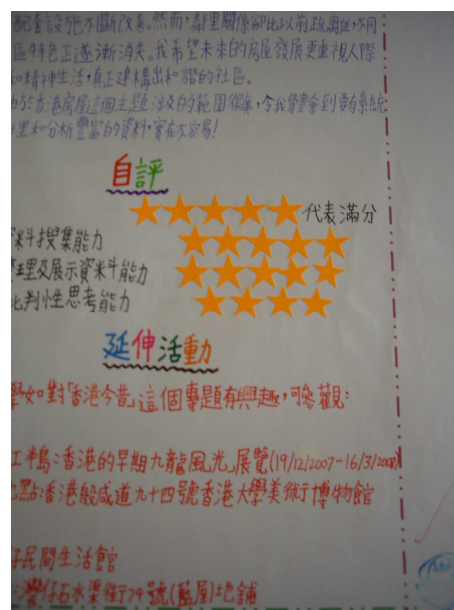 配套設施不斷改善。然而,鄰里關係卻比以前疏離,不同
區特色正逐漸消失。我希望未來的房屋發展更重視人際
和精神生活,真正建構出和諧的社區。
由於香港房屋這個主題涉及的範圍很廣,令我體會到要有系統
整理和分析豐富的資料,實在不容易!
自評
代表滿分
資料搜集能力
整理及展示資料能力
批判性思考能力
延伸活動
學如對「香港今昔」這個專題有興趣,可參觀:
江半島:香港的早期九龍風光」展覽(19/12/2007-16/3/2008)
地點:香港般咸道九十四號香港大學美術博物館
仔民間生活館
灣仔石水渠街74號(藍屋)地舖